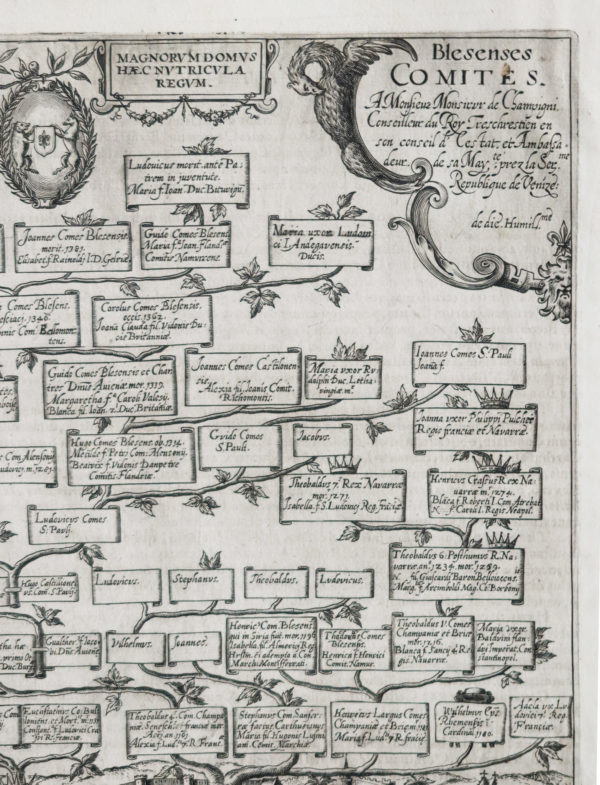 MAGNORVM DOMVS
HÆC NVTRICVLA
REGVM.
Blesenses
COMITES.
A Monsieur Monsieur de Champigni
Conseilleur du Roy Treschrestien en
son conseil d'estat, et Ambassa-
deur de sa May.te prez la Ser.me
Republique de Venize:
de die: Humil.me
Ludovicus morit. ante Pa-
trem in juventute.
Maria f. Ioan. Duc. Bituvigū.
Joannes Comes Blesensis
morit. 1381.
Elisabet f. Rainoldj I. D. Gelriæ.
Guido Comes Blesens.
Maria f. Ioan. flandr.
Comitis Namurcens.
Maria uxor Ludovi-
ci I. Andegavensis
Ducis.
Comes Blesens.
1346.
Com. Bellomon-
tens.
Carolus Comes Blesensis
occis. 1362.
Joana Claudā fil. Vidonis Du-
cis Britaniæ.
Guido Comes Blesensis et Char-
tres Dnus Avienæ mor. 1339.
Margaretha f.a Caroli Valesij
Blanca fil. Ioan. 2. Duc. Britaniæ
Joannes Comes Castilonen-
sis
Alexia fil. Joanis Comit.
Richomontis.
Maria uxor Ru-
dolphi Duc. Lotha-
ringiæ m.
Ioannes Comes S. Pauli
Joana f.
Joanna uxor Philippi Pulchri
Regis franciæ et Navarræ.
Com. Alensonij
Ludovici m. 1291.
Hugo Comes Blesens. ob. 1334.
Mectilde f. Petri Com. Alenconij.
Beatrix f. Vidonis Danpetre
Comitis Flandriæ.
Guido Comes
S. Pauli.
Jacobus.
Theobaldus 7. Rex Navarræ
mor. 1271.
Isabella f. S. Ludovici Reg. franciæ
Henricus Crassus Rex Na-
varræ m. 1274.
Blāca f. Roberti I. Com. Atrebat.
N. f. Caroli I. Regis Neapol.
Ludovicus Comes
S. Pauli.
Theobaldus 6. Posthumus R. Na-
varræ an. 1234. mor. 1259.
N. fil. Guiscardi Baron. Bellijocens.
Marg. f. Arcimboli Mag. Cō. Borbony
Hugo Castilione-
us. Com. S. Pauli.
Ludovicus.
Stephanus.
Theobaldus.
Ludovicus.
Gualther f. Iaco-
bi Duc. Avenæ
Wilhelmus.
Joannes.
Henric. Com. Blesens.
qui in Siria fuit mor. 1196
Isabella fil. Almerici Reg.
Hierosm. ei adempta a Com.
March. Montisferrati
Thadoeus Comes
Blesensis.
Henrica f. Henrici
Comit. Namur.
Theobaldus V. Comes
Champaniæ et Briæ
mor. 1216.
Blanca f. Sancij 4. Re-
gis Navarræ.
Maria uxor
Balduini flan-
driæ Imperat. Con-
stantinopol.
Eustathius Co. Bol-
loniens. et Mort. m. 1153
Constant. f. Ludovici Cras-
pi R. franciæ
Theobaldus 4. Com. Champa-
niæ Senesch. f. Franciæ mor.
Acon. 1191.
Alexia f. Lud. 7. R. Franc.
Stephanus Com. Sanser-
ræ factus Carthusianus
Maria fil. Hugonis Lusini-
ani Comit. Marchiæ
Henricus Largus Comes
Champaniæ et Briæ m. 1181
Maria f. Lud. 7. R. franciæ
Wilhelmus Eps.
Rhemensis
Cardinal. 1180.
Adela ux. Lu-
dovici 7. Reg.
Franciæ